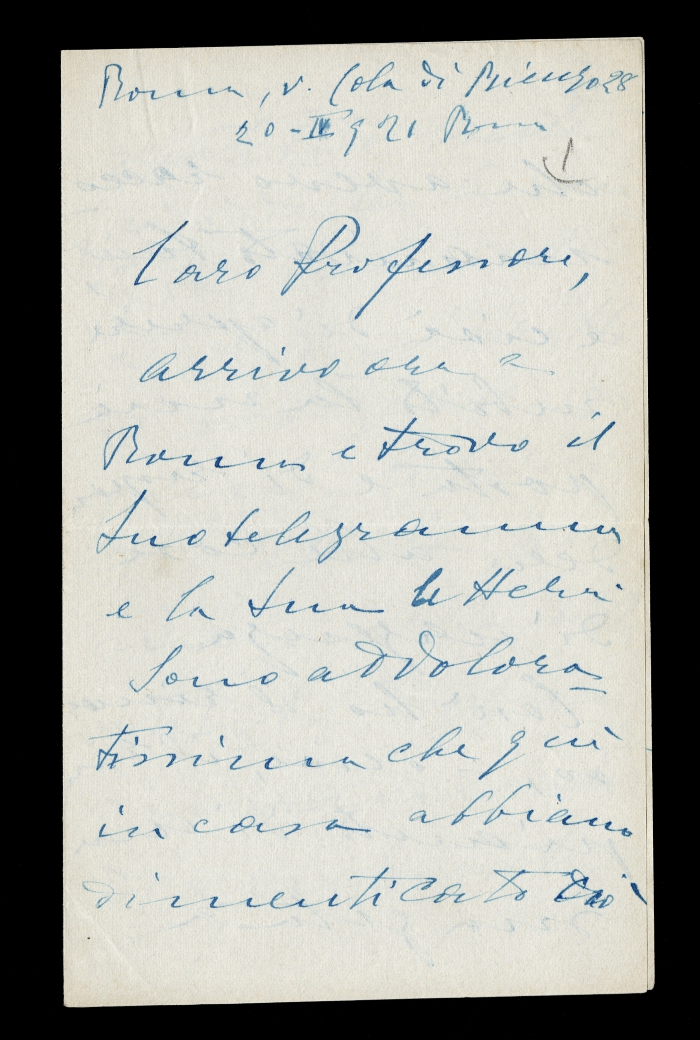 Roma, v. Cola di Rienzo 28
20-IV 921 Roma
Caro Professore,
arrivo ora a
Roma e trovo il
Suo telegramma
e la Sua lettera
Sono addolora
tissima che qui
in casa abbiano
dimenticato